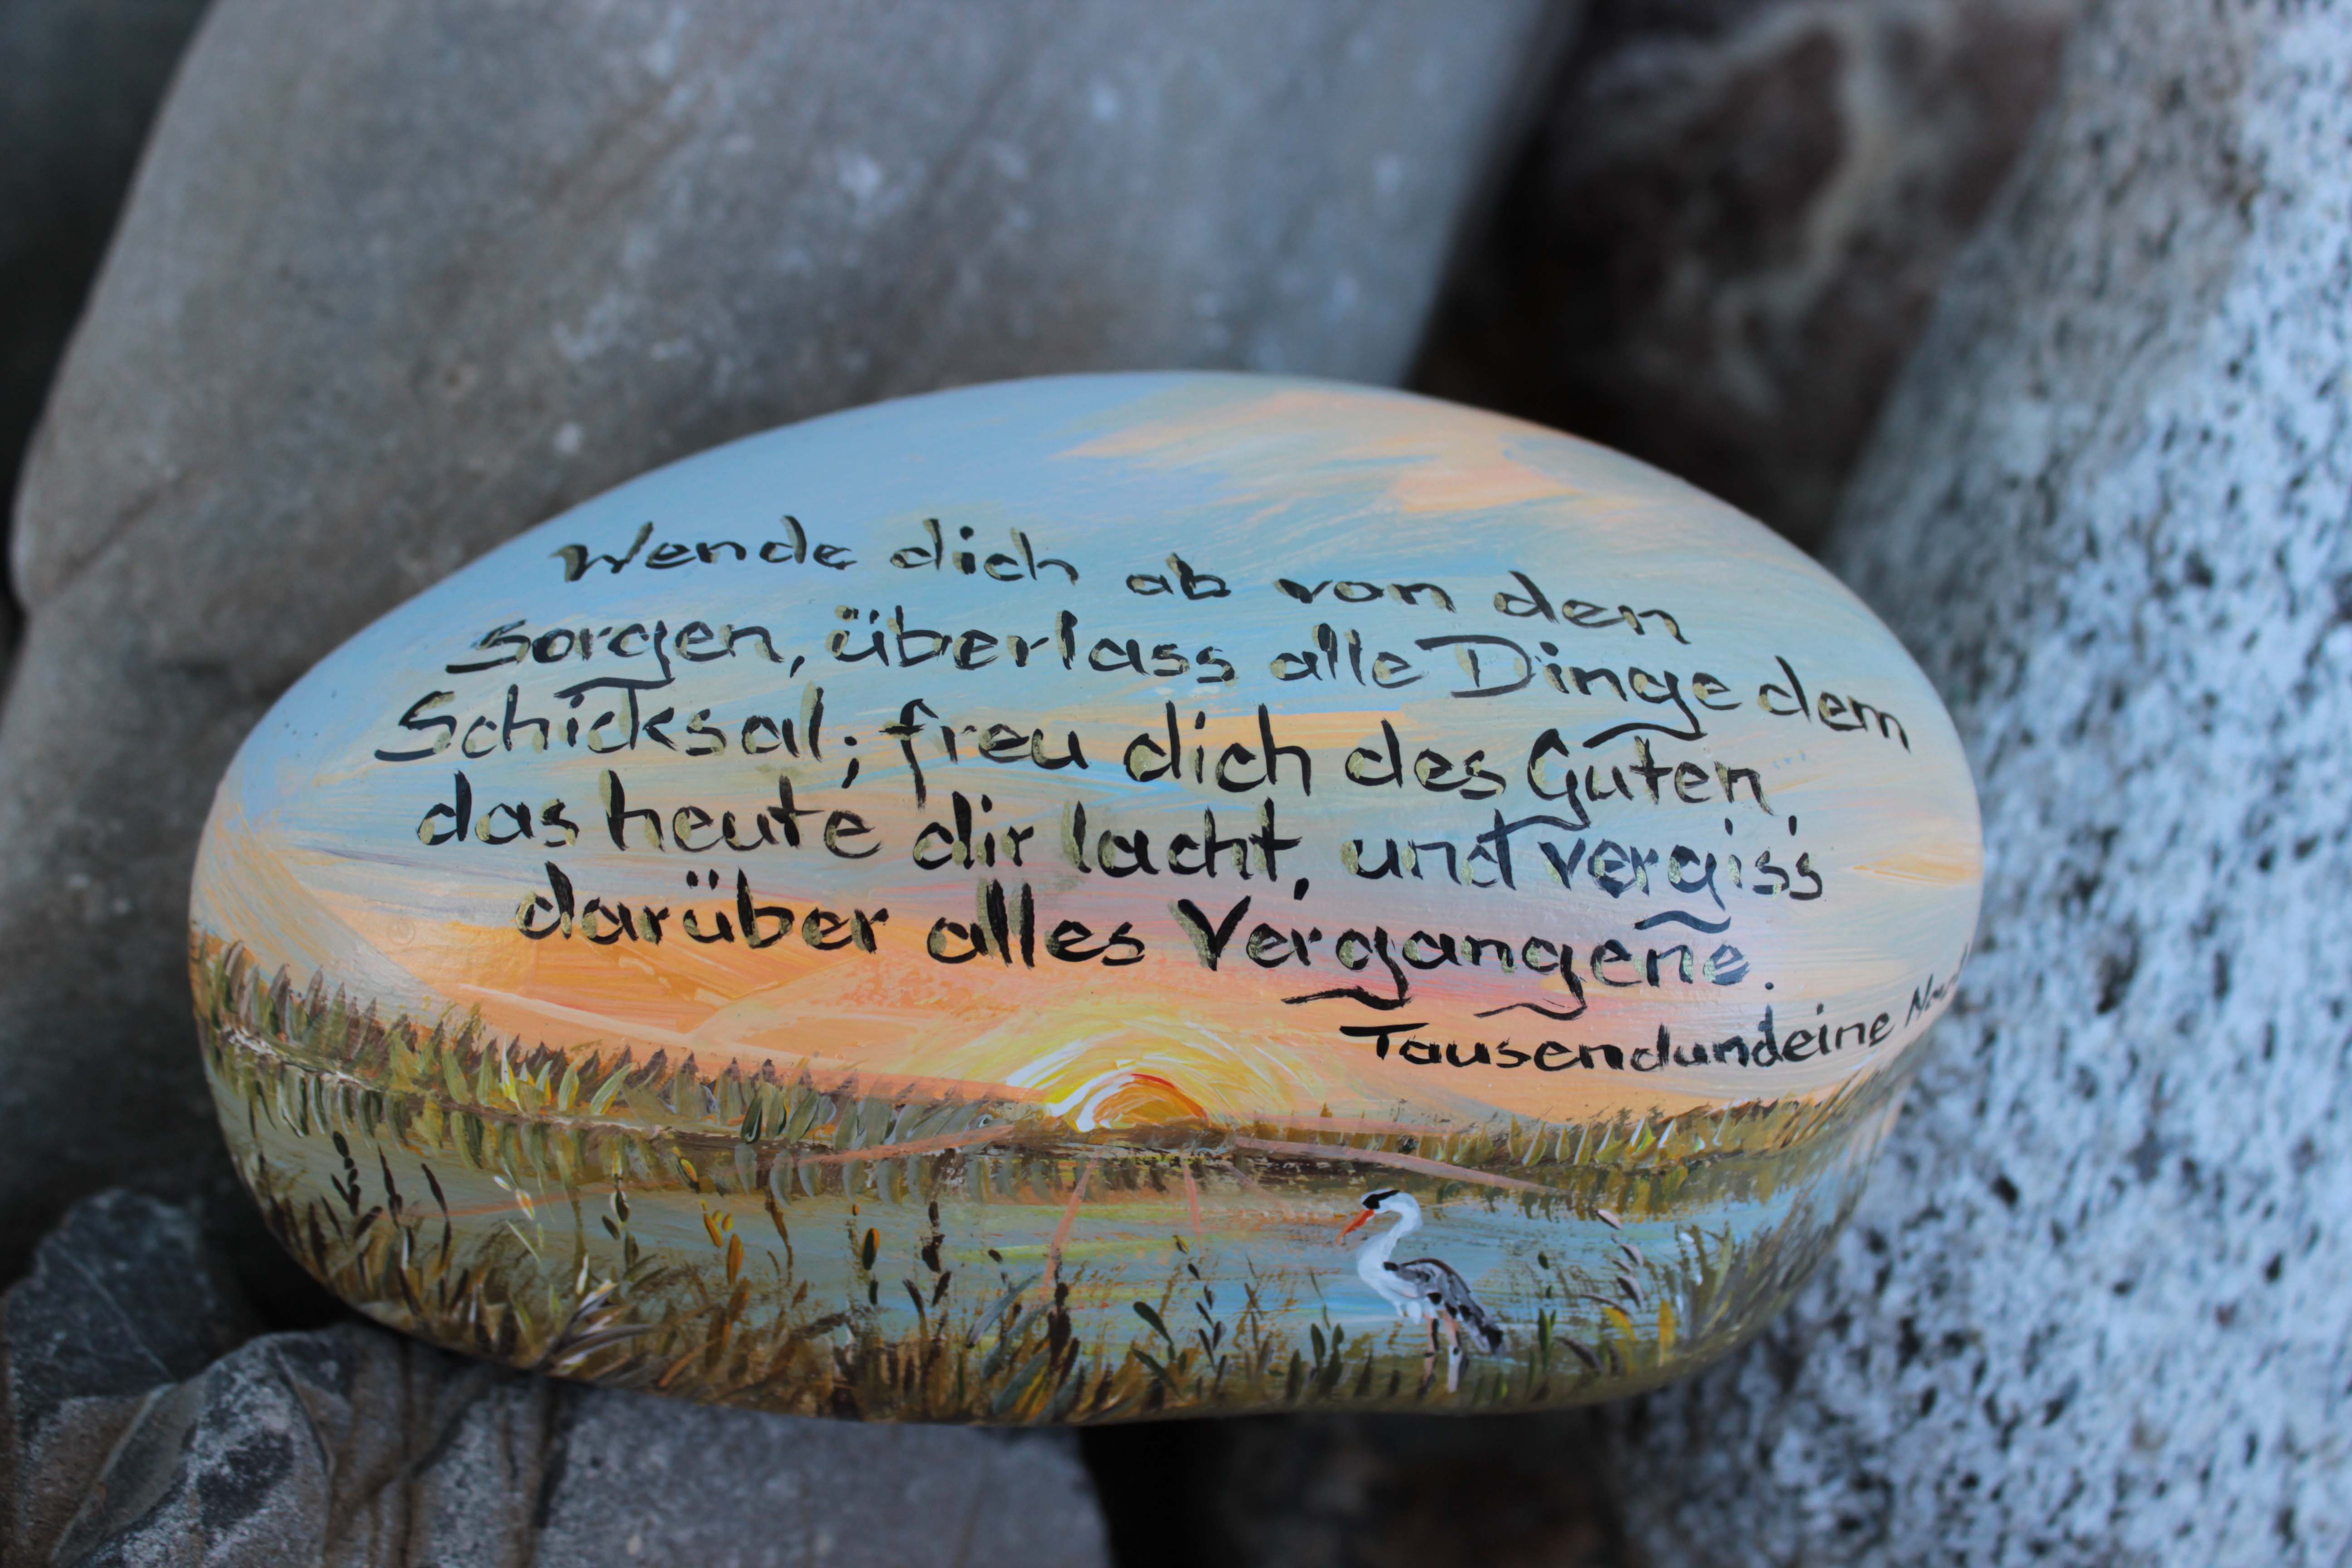 Wende dich ab von den
Sorgen, überlass alle Dinge dem
Schicksal; freu dich des Guten
das heute dir lacht, und vergiss
darüber alles Vergangene.
Tausendundeine